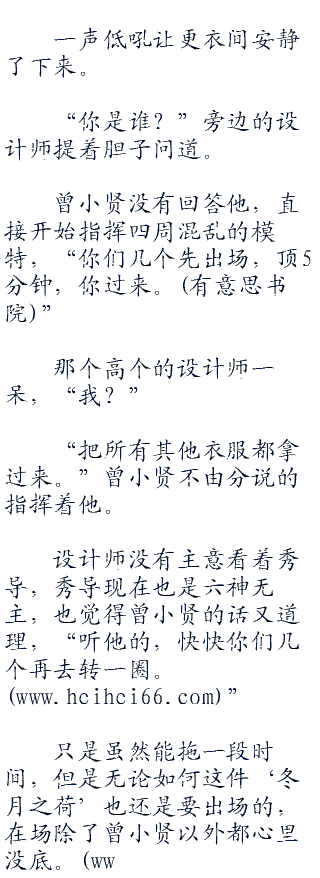 一声低吼让更衣间安静
了下来。
“你是谁？”旁边的设
计师提着胆子问道。
曾小贤没有回答他，直
接开始指挥四周混乱的模
特，“你们几个先出场，顶5
分钟，你过来。(有意思书
院)”
那个高个的设计师一
呆，“我？”
“把所有其他衣服都拿
过来。”曾小贤不由分说的
指挥着他。
设计师没有主意看着秀
导，秀导现在也是六神无
主，也觉得曾小贤的话又道
理，“听他的，快快你们几
个再去转一圈。
(www.hcihci66.com)”
只是虽然能拖一段时
间，但是无论如何这件‘冬
月之荷’也还是要出场的，
在场除了曾小贤以外都心里
没底。(ww